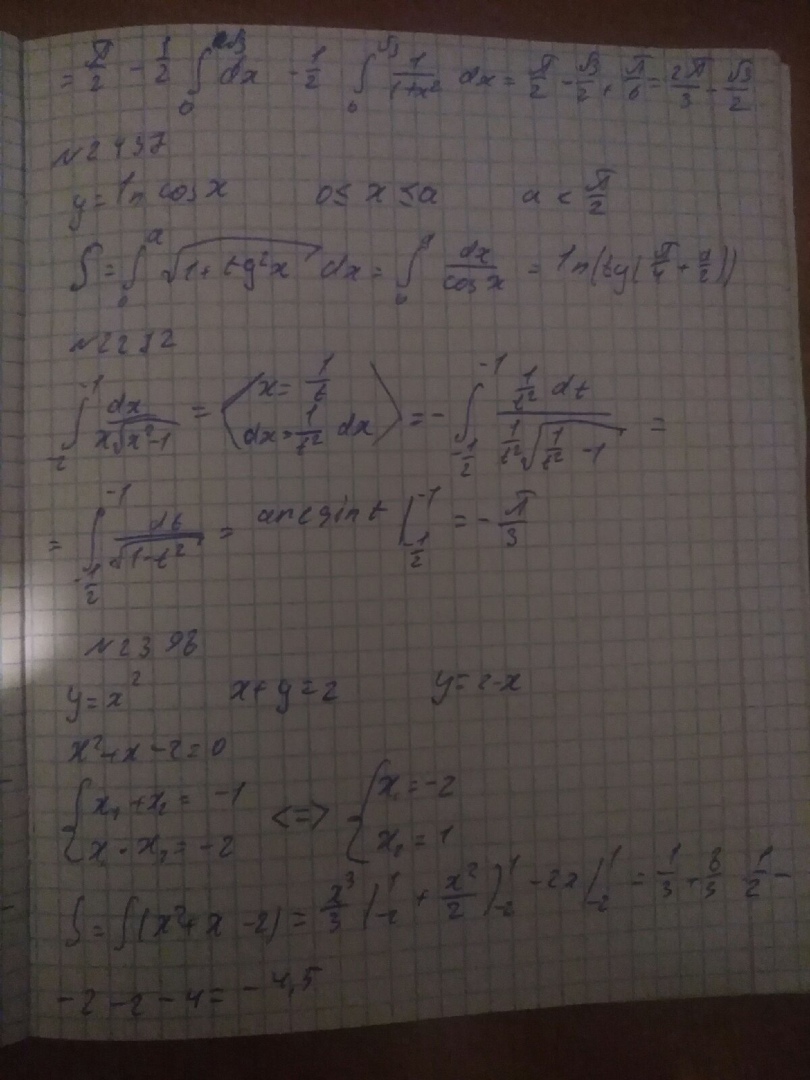 = π/2 - 1/2 ∫₀^√3 dx - 1/2 ∫₀^√3 1/(1+x²) dx = π/2 - √3/2 + π/6 = 2π/3 - √3/2
№2437
y = ln cos x 0 ≤ x ≤ a a < π/2
S = ∫₀^a √(1+tg²x) dx = ∫₀^a dx/cos x = ln(tg(π/4 + a/2))
№2232
∫₋₂^-1 dx/(x√(x²-1)) = ⟨x = 1/t
dx = 1/t² dx⟩ = - ∫_(-1/2)^-1 (1/t² dt)/(1/t² √(1/t² - 1)) =
= ∫_(-1/2)^-1 dt/√(1-t²) = arcsin t |_(-1/2)^-1 = - π/3
№2398
y = x² x+y = 2 y = 2-x
x²+x-2=0
{x₁+x₂ = -1 <=> {x₁ = -2
x · x₂ = -2 x₂ = 1
S = ∫(x²+x-2) = x³/3 |₋₂^1 + x²/2 |₋₂^1 - 2x |₋₂^1 = 1/3 + 8/3 1/2 -
-2-2-4 = -4,5